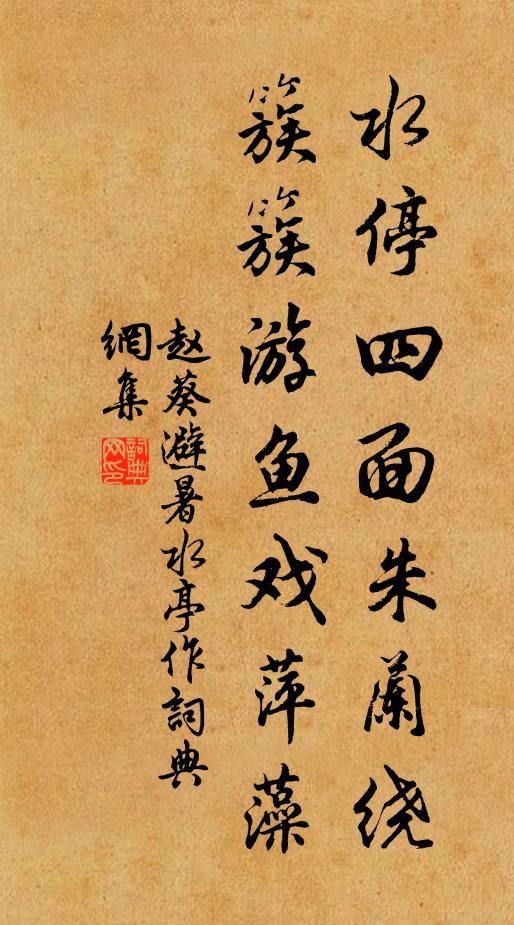 水停四面朱蘭绕
簇簇游鱼戏萍藻
赵葵避暑水亭作詞典
網集
詞典网印